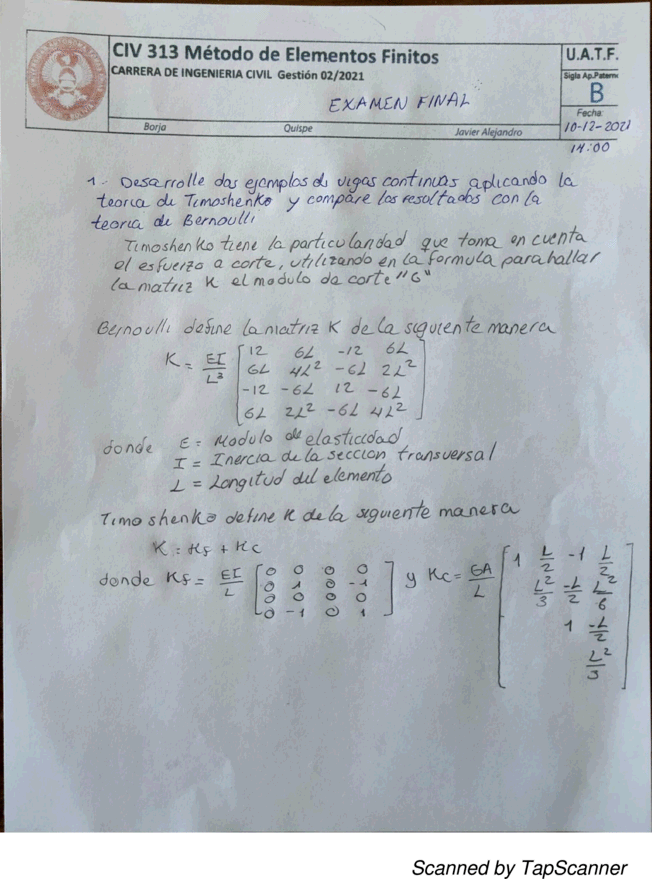 CIV 313 Método de Elementos Finitos
U.A.T.F.
CARRERA DE INGENIERIA CIVIL Gestión 02/2021
Sigla Ap.Paterno
B
EXAMEN FINAL
Fecha:
Borja Quispe Javier Alejandro
10-12-2021
14:00
1.- Desarrolle dos ejemplos de vigas continuas aplicando la
teoria de Timoshenko y compare los resultados con la
teoria de Bernoulli
Timoshenko tiene la particularidad que toma en cuenta
el esfuerzo a corte, utilizando en la formula para hallar
la matriz K el modulo de corte "G"
Bernoulli define la matriz K de la siguiente manera
K = EI/L³ [ 12 6L -12 6L
6L 4L² -6L 2L²
-12 -6L 12 -6L
6L 2L² -6L 4L² ]
donde E = Modulo de elasticidad
I = Inercia de la seccion transversal
L = Longitud del elemento
Timoshenko define K de la siguiente manera
K = Kf + Kc
donde Kf = EI/L [ 0 0 0 0
0 1 0 -1
0 0 0 0
0 -1 0 1 ] y Kc = GA/L [ 1 L/2 -1 L/2
L²/3 -L/2 L²/6
1 -L/2
L²/3 ]
Scanned by TapScanner